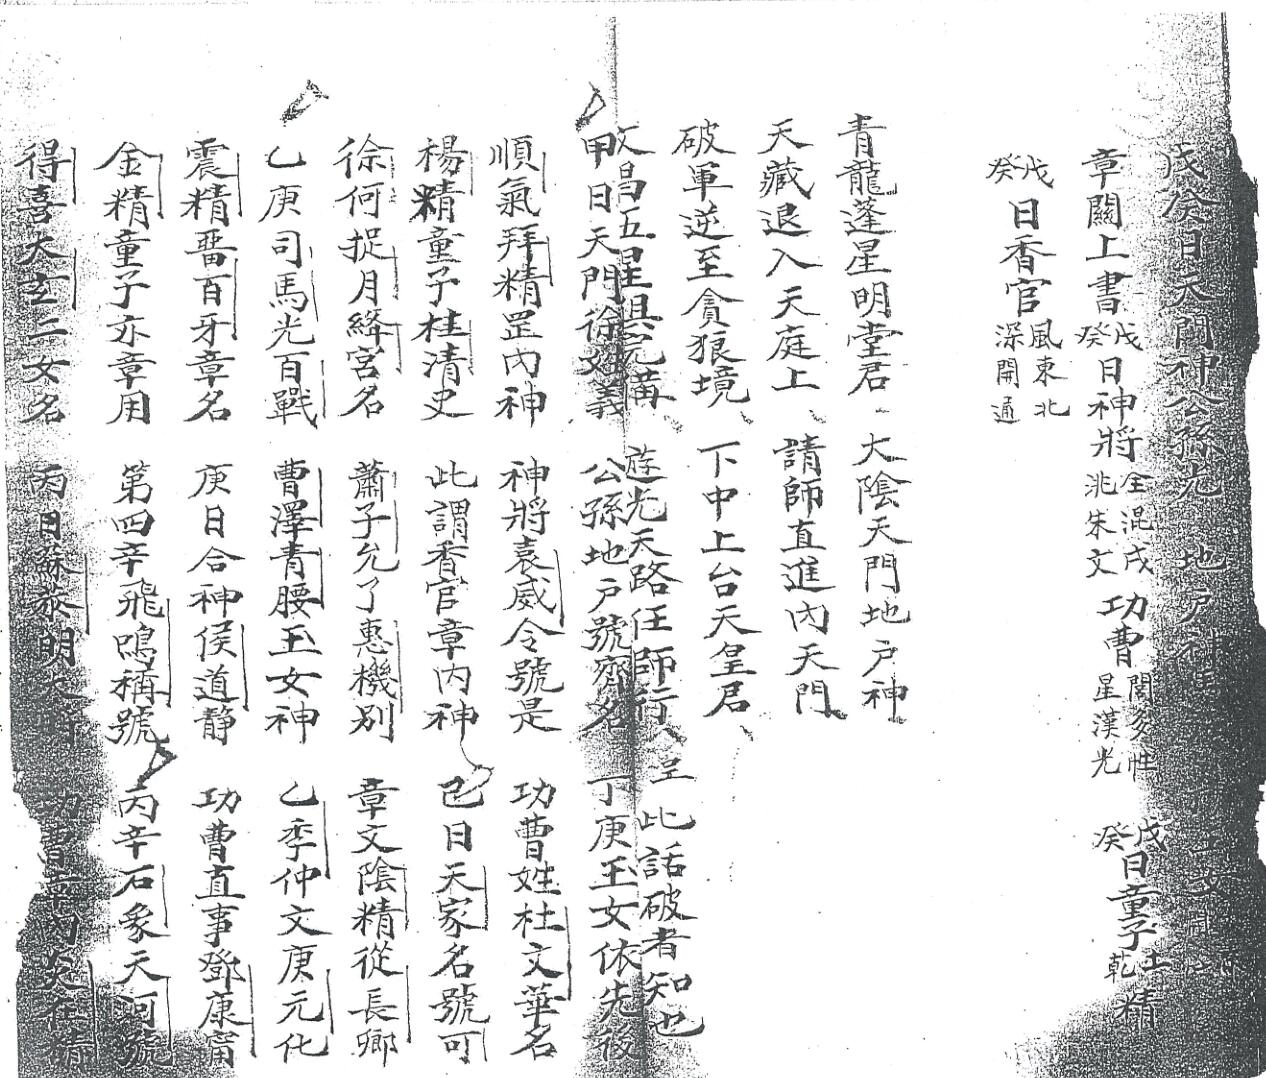 戊癸日天門神公孫光 地戶神
章闗上書戊癸日神將全混戌洮朱文 功曹閻多性星漢光 戊癸日童子土乾精
戊癸日香官風東北深開通
青龍蓬星明堂君 大陰天門地戶神
天藏退入天庭上 請師直進內天門
破軍逆至貪狼境 下中上台天皇君
文昌五星俱完備 莚光天路任師行 此話破者知也
甲日天門徐姓義 公孫地戶號齊名 丁庚玉女依先後
順氣拜精罡內神 神將袁威令號是 功曹姓杜文華名
楊精童子桂清史 此謂香官章內神 己日天家名號可
徐何捉月絳宮名 蕭子允了惠機別 章文陰精從長鄉
乙庚司馬光百戰 曹澤青腰玉女神 乙季仲文庚元化
震精畨百牙章名 庚日合神侯道静 功曹直事鄧康甯
金精童子亦章用 第四辛飛鳴稱號 丙辛石象天河號
得喜大玄二女名 丙日蘇 明大 功曹章內炎在精